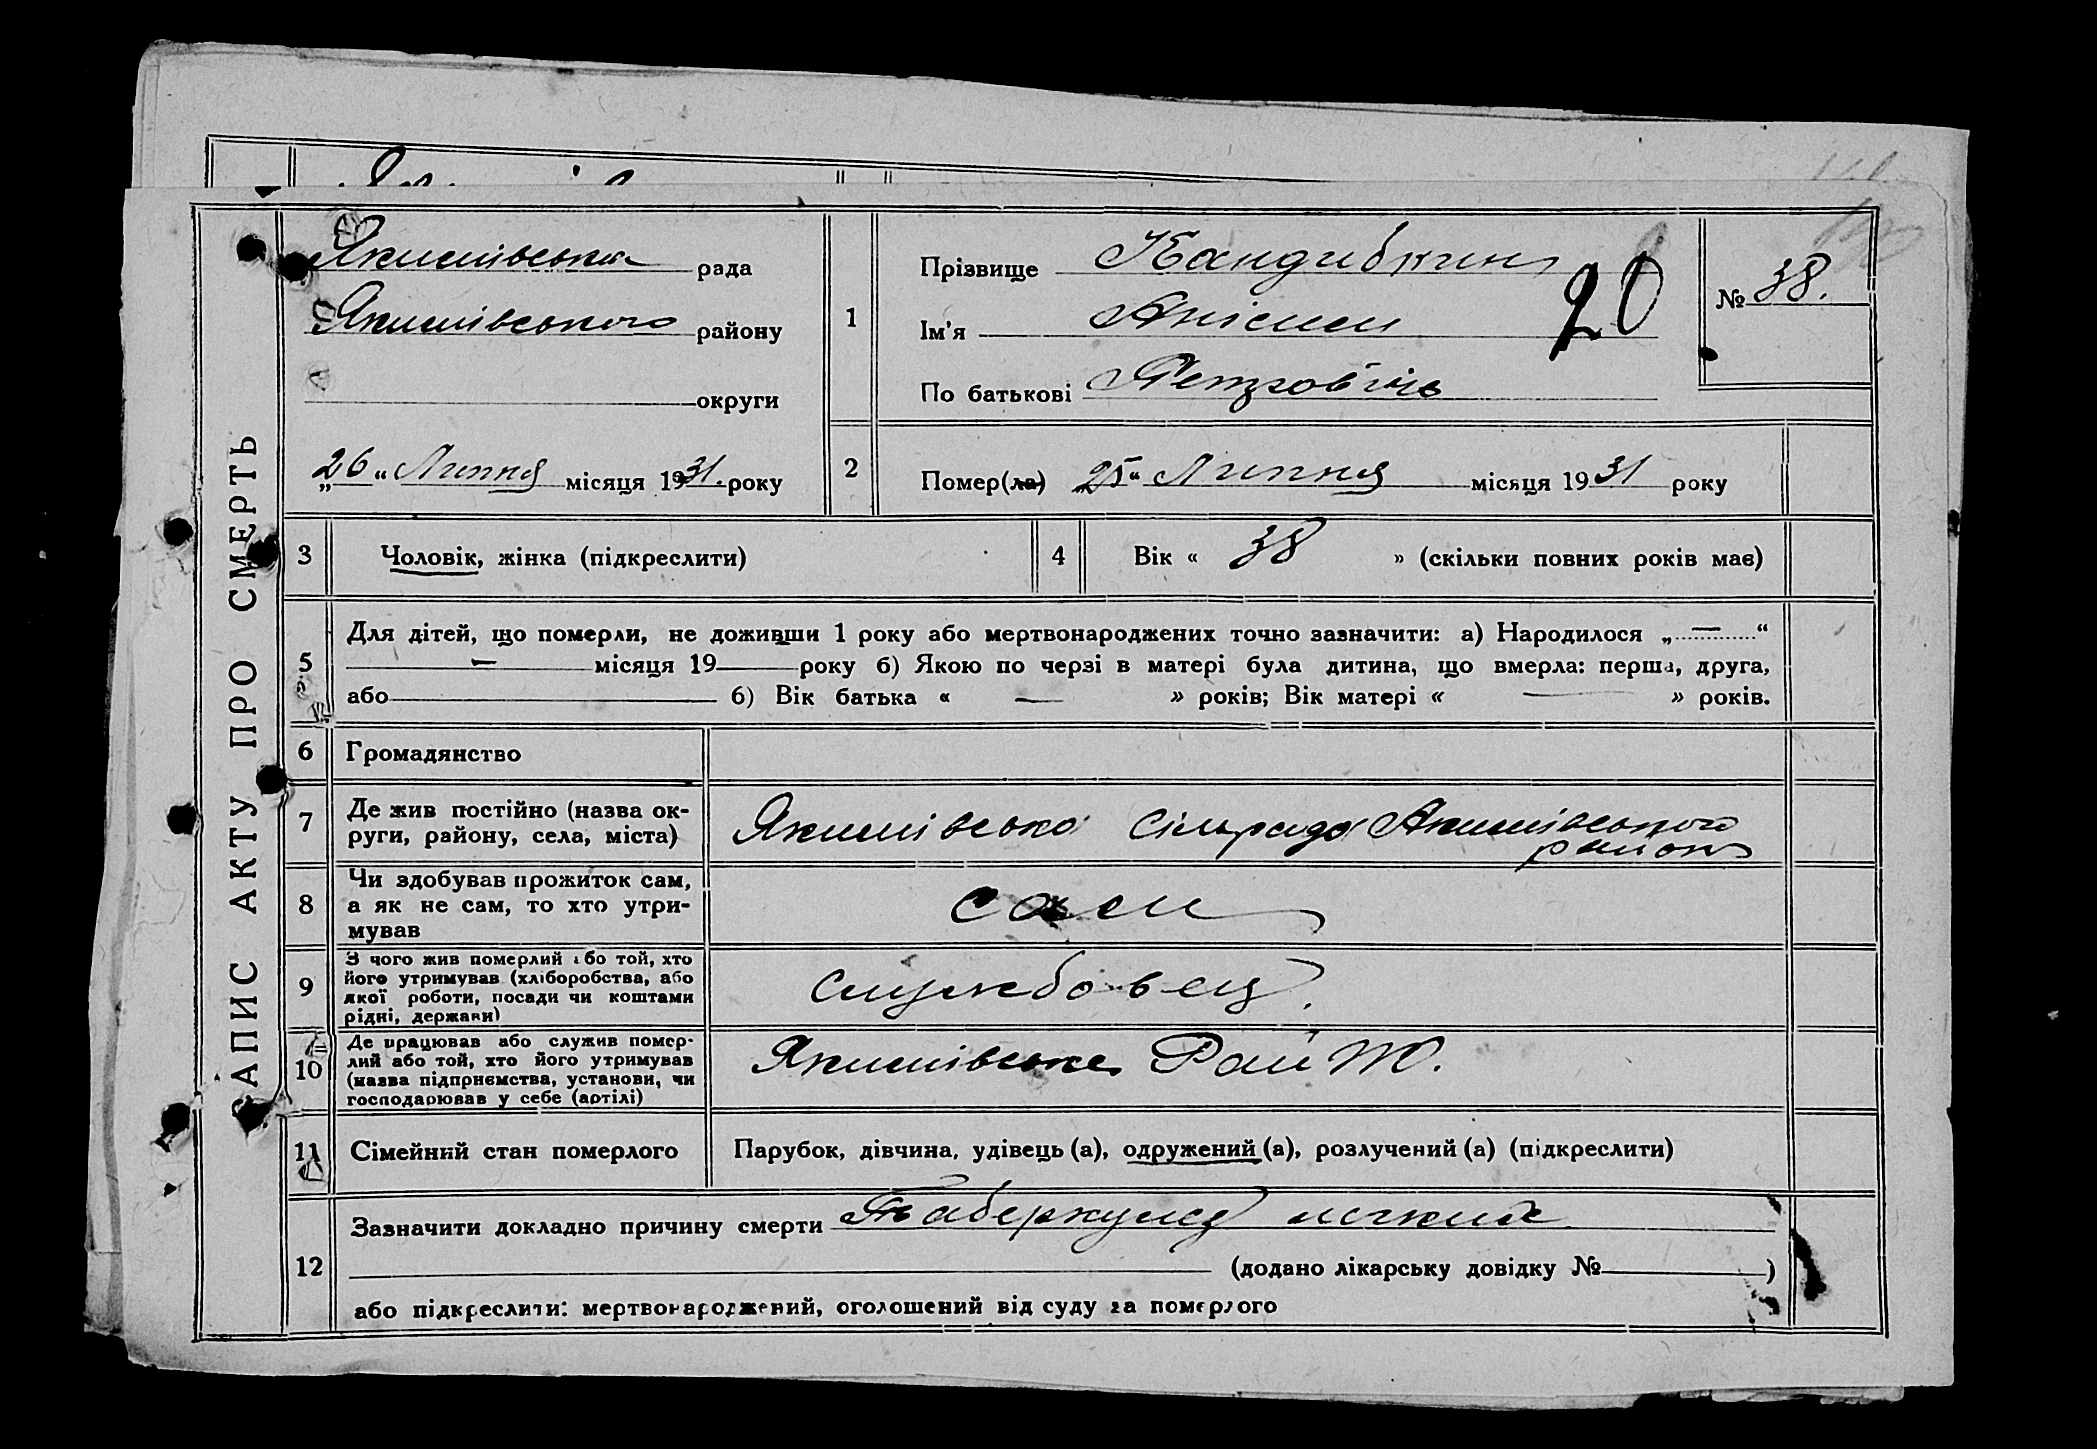 ЗАПИС АКТУ ПРО СМЕРТЬ
Якимівська рада
Якимівського району
округи
„26“ Липня місяця 1931. року
1
Прізвище Кандибкин
Ім'я Анісим
По батькові Петровіч
20
№ 38.
2
Помер(ла) „25“ Липня місяця 1931 року
3 Чоловік, жінка (підкреслити)
4 Вік « 38 » (скільки повних років має)
5
Для дітей, що померли, не доживши 1 року або мертвонароджених точно зазначити: а) Народилося „—“
— місяця 19 року б) Якою по черзі в матері була дитина, що вмерла: перша, друга,
або 6) Вік батька « — » років; Вік матері « — » років.
6 Громадянство
7
Де жив постійно (назва ок-
руги, району, села, міста)
Якимівська Сільрада Якимівського
району
8
Чи здобував прожиток сам,
а як не сам, то хто утри-
мував
сам
9
З чого жив померлий або той, хто
його утримував (хліборобства, або
якої роботи, посади чи коштами
рідні, держави)
службовец.
10
Де працював або служив помер-
лий або той, хто його утримував
(назва підприємства, установи, чи
господарював у себе (артілі)
Якимівське Рай
11 Сімейний стан померлого
Парубок, дівчина, удівець (а), одружений (а), розлучений (а) (підкреслити)
12
Зазначити докладно причину смерти Таберкулез легких
(додано лікарську довідку № )
або підкреслити: мертвонароджений, оголошений від суду за померлого